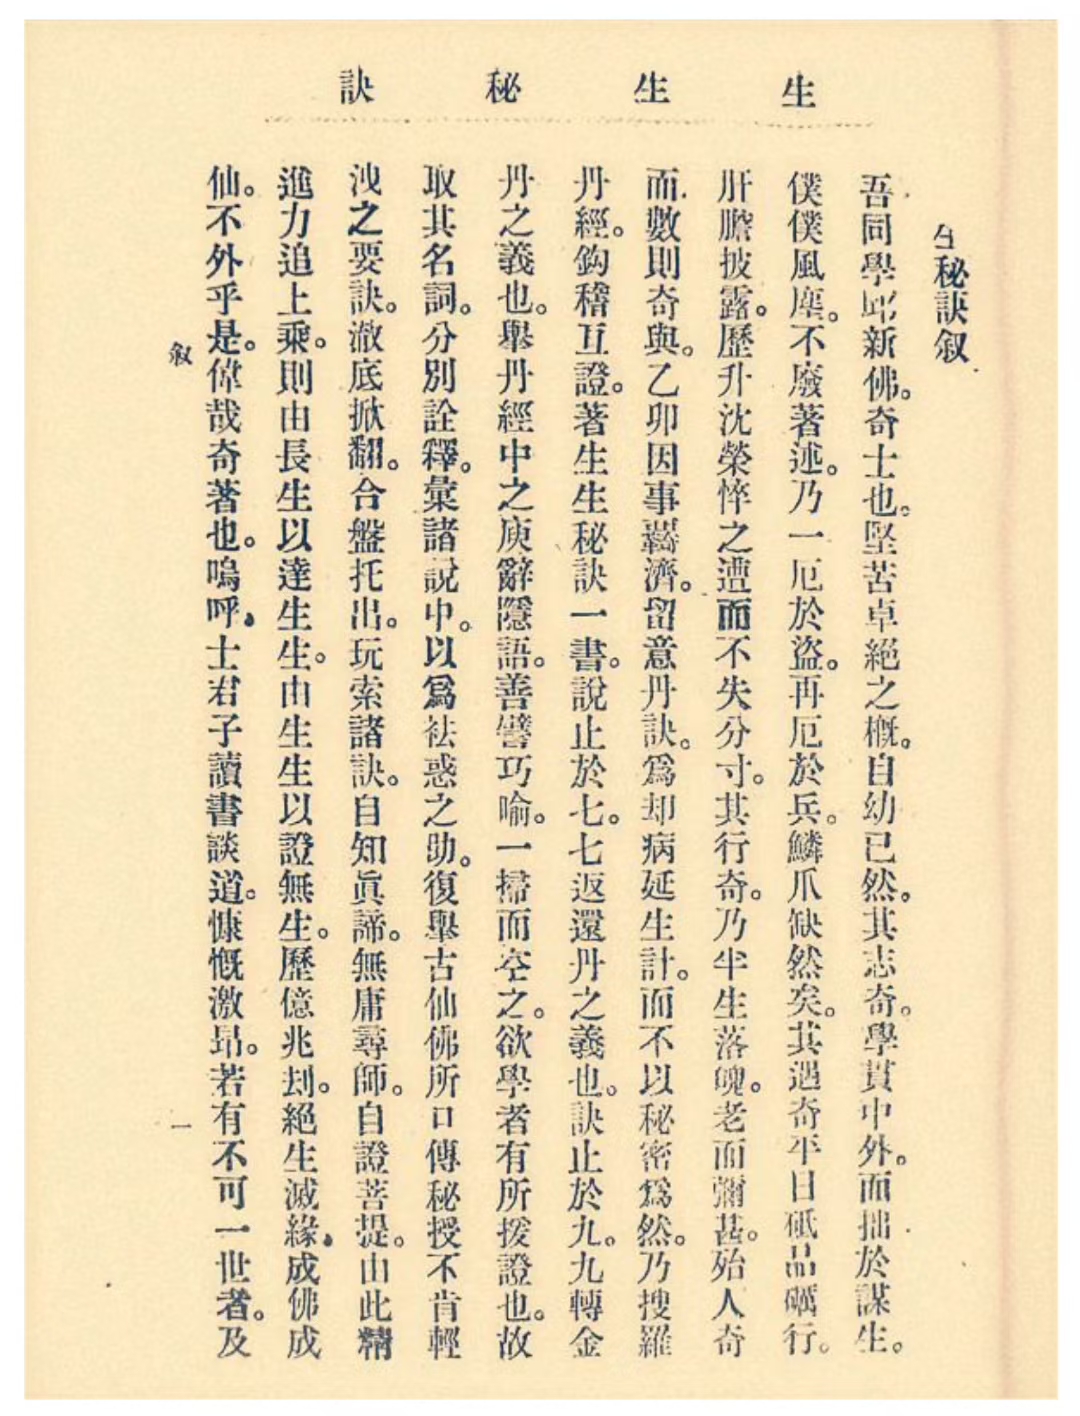 生生秘訣
生秘訣叙
吾同學邱新佛。奇士也。堅苦卓絕之概。自幼已然。其志奇。學貫中外。而拙於謀生。
僕僕風塵。不廢著述。乃一厄於盜。再厄於兵。鱗爪缺然矣。其遇奇平日砥品礪行。
肝膽披露。歷升沈榮悴之遭而不失分寸。其行奇。乃半生落魄。老而彌甚。殆人奇
而數則奇與。乙卯因事羈濟。留意丹訣。爲却病延生計。而不以秘密爲然。乃搜羅
丹經。鈎稽互證。著生生秘訣一書。說止於七。七返還丹之義也。訣止於九。九轉金
丹之義也。舉丹經中之庾辭隱語。善譬巧喻。一掃而空之。欲學者有所援證也。故
取其名詞。分別詮釋。彙諸說中。以爲袪惑之助。復舉古仙佛所口傳秘授不肯輕
洩之要訣。澈底掀翻。合盤托出。玩索諸訣。自知眞諦。無庸尋師。自證菩提。由此精
進力追上乘。則由長生以達生生。由生生以證無生。歷億兆刦。絕生滅緣。成佛成
仙。不外乎是。偉哉奇著也。嗚呼。士君子讀書談道。慷慨激昂。若有不可一世者。及
叙
一